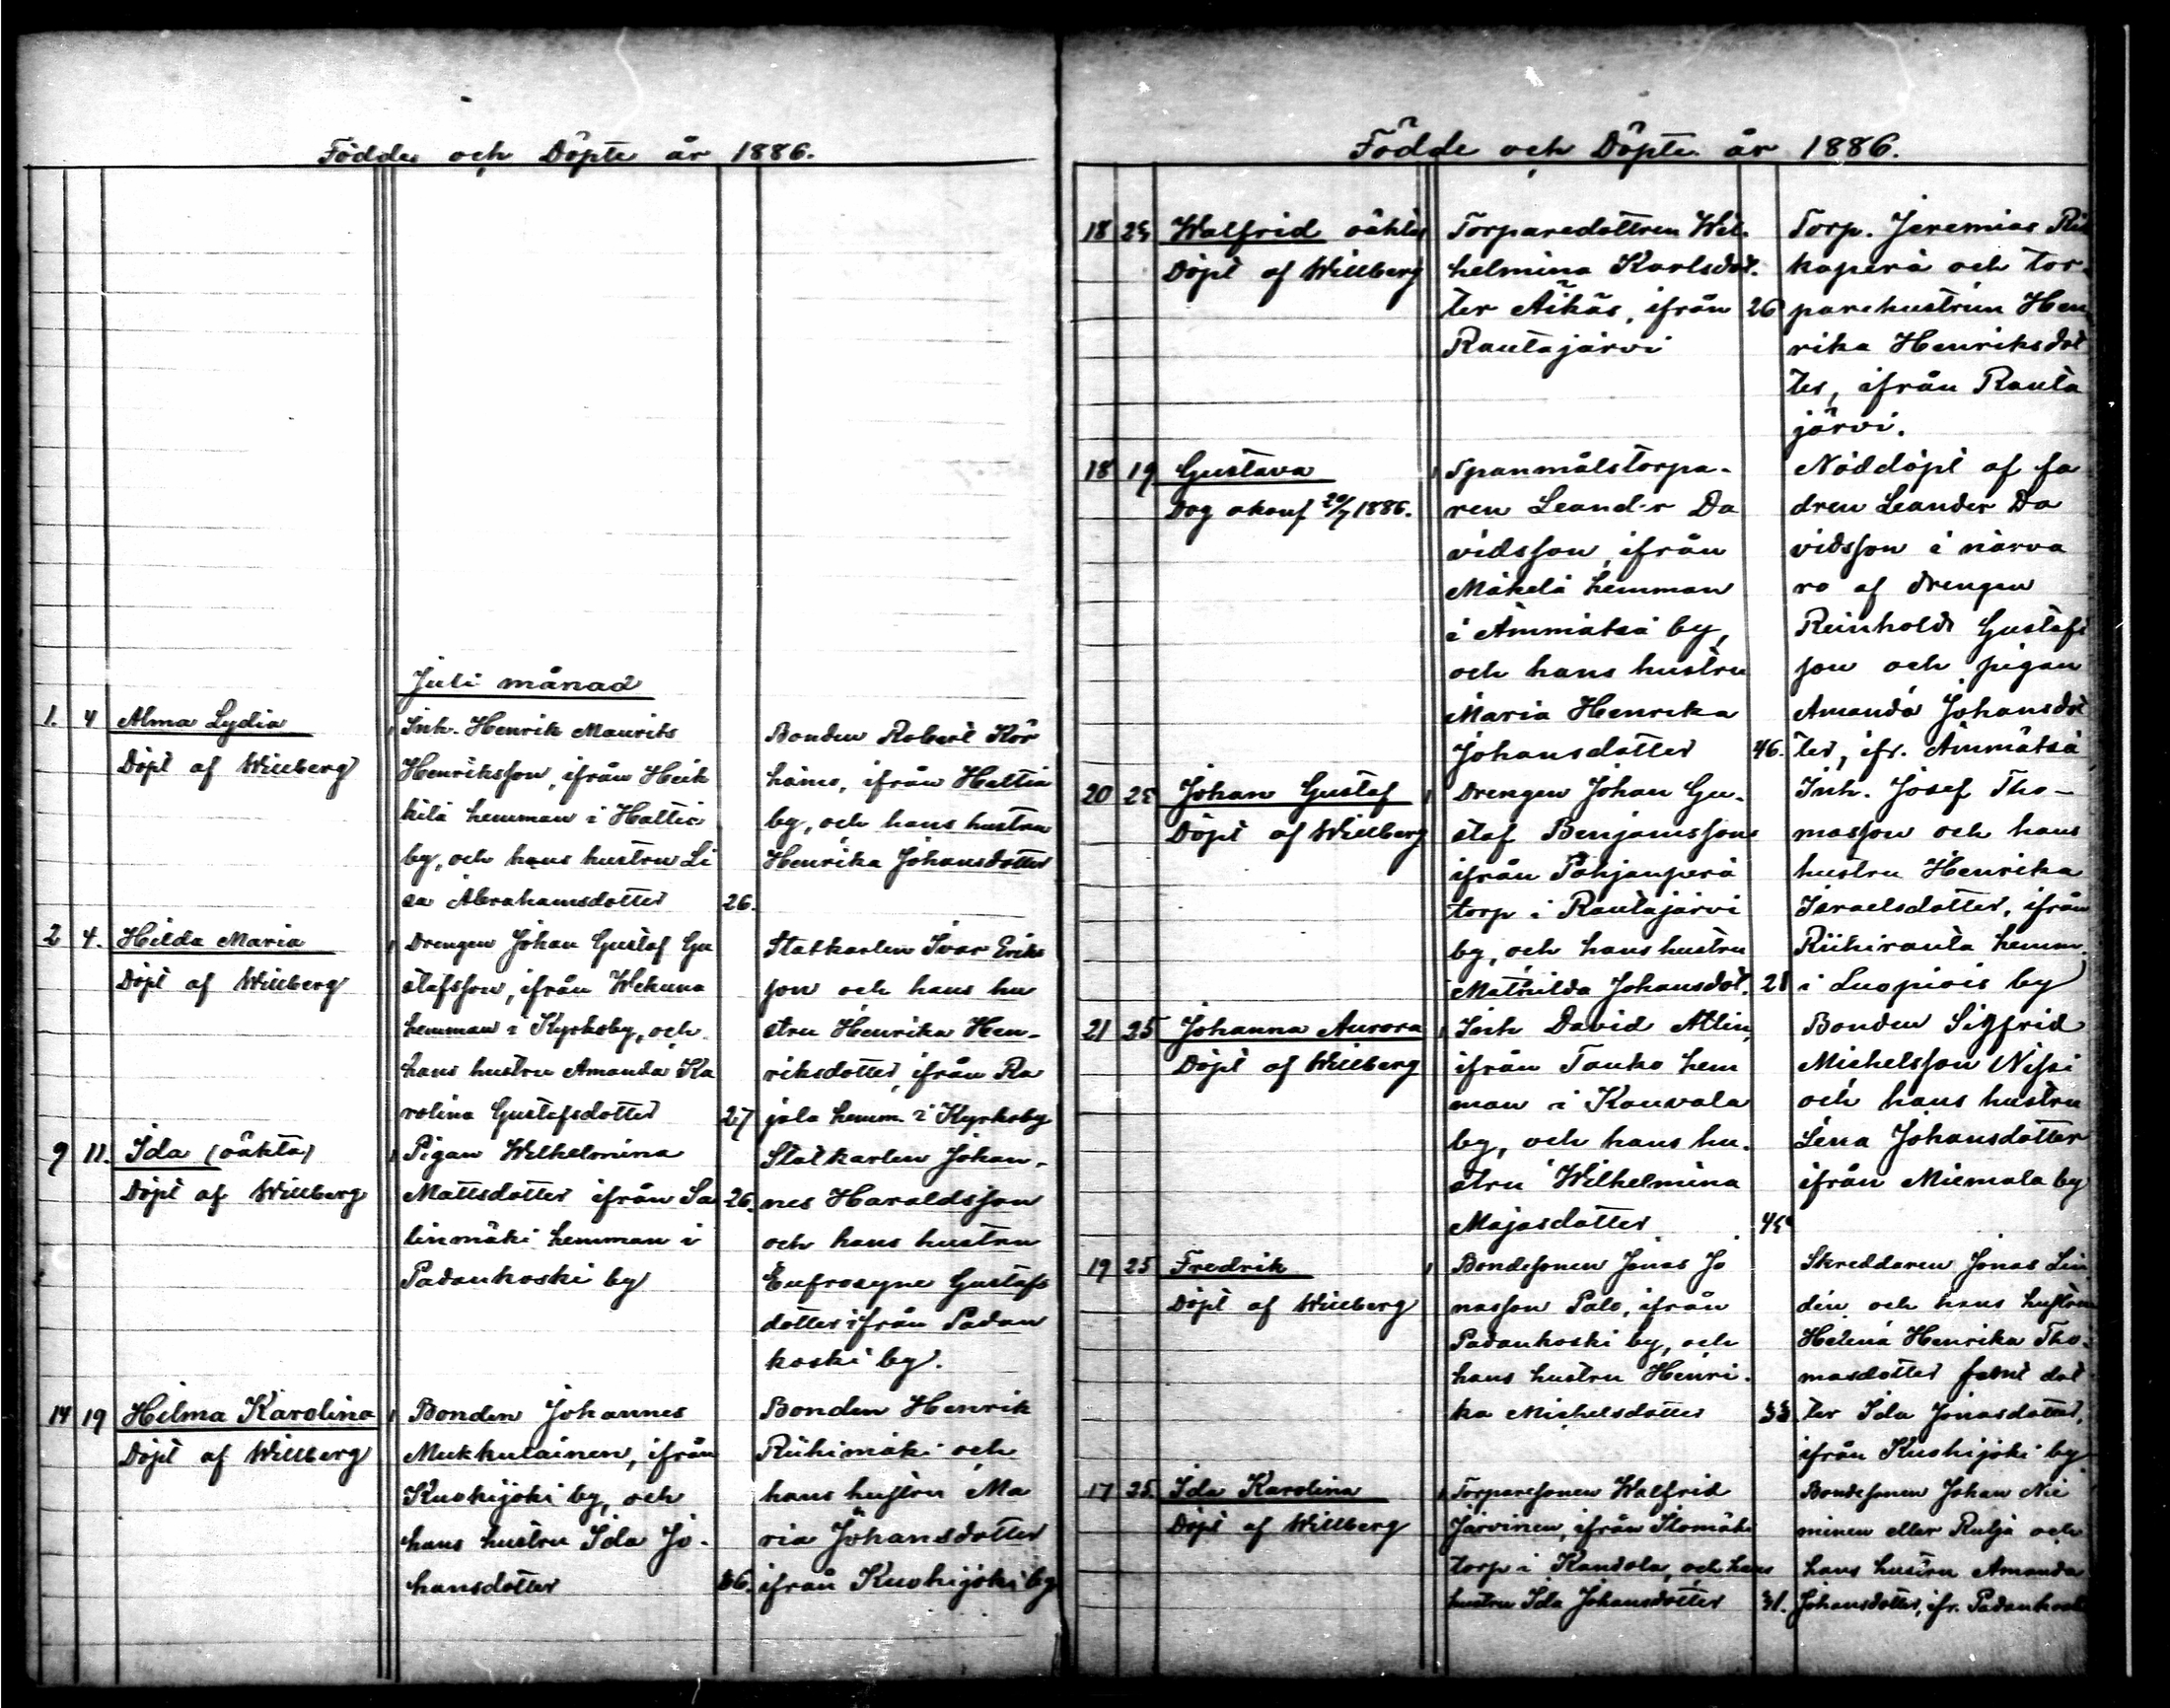 Födde och Döpte år 1886.
Juli månad
1. 4 Alma Lydia
Döpt af Willberg
Inh. Henrik Maurits
Henriksson, ifrån Heik
kilä hemman i Hattia
by, och hans hustru Li
sa Abrahamsdotter 26.
Bonden Robert Kor
hamo, ifrån Hattia
by, och hans hustru
Henrika Johansdotter
2 4. Hilda Maria
Döpt af Willberg
Drengen Johan Gustaf Gu
stafsson, ifrån Wekuna
hemman i Kyrkoby, och
hans hustru Amanda Ka
rolina Gustafsdotter 27
Statkarlen Ivar Eriks
son och hans hu
stru Henrika Hen-
riksdotter, ifrån Ra
jala hemm. i Kyrkoby
9 11. Ida (oäkta)
Döpt af Willberg
Pigan Wilhelmina
Mattsdotter ifrån Sa 26.
linmäki hemman i
Padankoski by
Statkarlen Johan-
nes Haraldsson
och hans hustru
Eufrosyne Gustafs
dotter ifrån Padan
koski by.
14 19 Hilma Karolina
Döpt af Willberg
Bonden Johannes
Mukkulainen, ifrån
Kuohijoki by, och
hans hustru Ida Jo-
hansdotter 36.
Bonden Henrik
Riihimäki och
hans hustru Ma
ria Johansdotter
ifrån Kuohijoki by
Födde och Döpte år 1886.
18 25 Walfrid oäkta
Döpt af Willberg
Torparedottren Wil-
helmina Karlsdot-
ter Äikäs, ifrån 26
Rautajärvi
Torp. Jeremias
kaperä och tor-
parehustrun Hen
rika Henriksdot
ter, ifrån Rauta
järvi.
18 19 Gustava
Dog okonf 20/7 1886.
Spanmålstorpa-
ren Leander Da
vidsson, ifrån
Mäkelä hemman
i Ämmätsä by,
och hans hustru
Maria Henrika
Johansdotter 46.
Nöddöpt af fa
dren Leander Da
vidsson i närva
ro af drengen
Reinhold Gustafs
son och pigan
Amanda Johansdot
ter, ifr. Ämmätsä
20 25 Johan Gustaf
Döpt af Willberg
Drengen Johan Gu-
staf Benjamsson
ifrån Pohjanperä
torp i Rautajärvi
by, och hans hustru
Mathilda Johansdot. 28
Inh. Josef Tho-
masson och hans
hustru Henrika
Israelsdotter, ifrån
Riihiranta hemm.
i Luopiois by
21 25 Johanna Aurora
Döpt af Willberg
Inh David Atlin,
ifrån Tanko hem
man i Kouvala
by, och hans hu-
stru Wilhelmina
Majasdotter
Bonden Sigfrid
Michelsson Nissi
och hans hustru
Lena Johansdotter
ifrån Miemala by
19 25 Fredrik
Döpt af Willberg
Bondesonen Jonas Jo
nasson Palo, ifrån
Padankoski by, och
hans hustru Henri-
ka Michelsdotter 33
Skreddaren Jonas Lin
din och hans hustru
Helena Henrika Tho-
masdotter samt dot
ter Ida Jonasdotter,
ifrån Kuohijoki by
17 25. Ida Karolina
Döpt af Willberg
Torparesonen Walfrid
Järvinen, ifrån Ilomäki
torp i Kandola, och hans
hustru Ida Johansdotter 31.
Bondesonen Johan Nie
minen eller Rulja och
hans hustru Amanda
Johansdotter, ifr. Padankoski